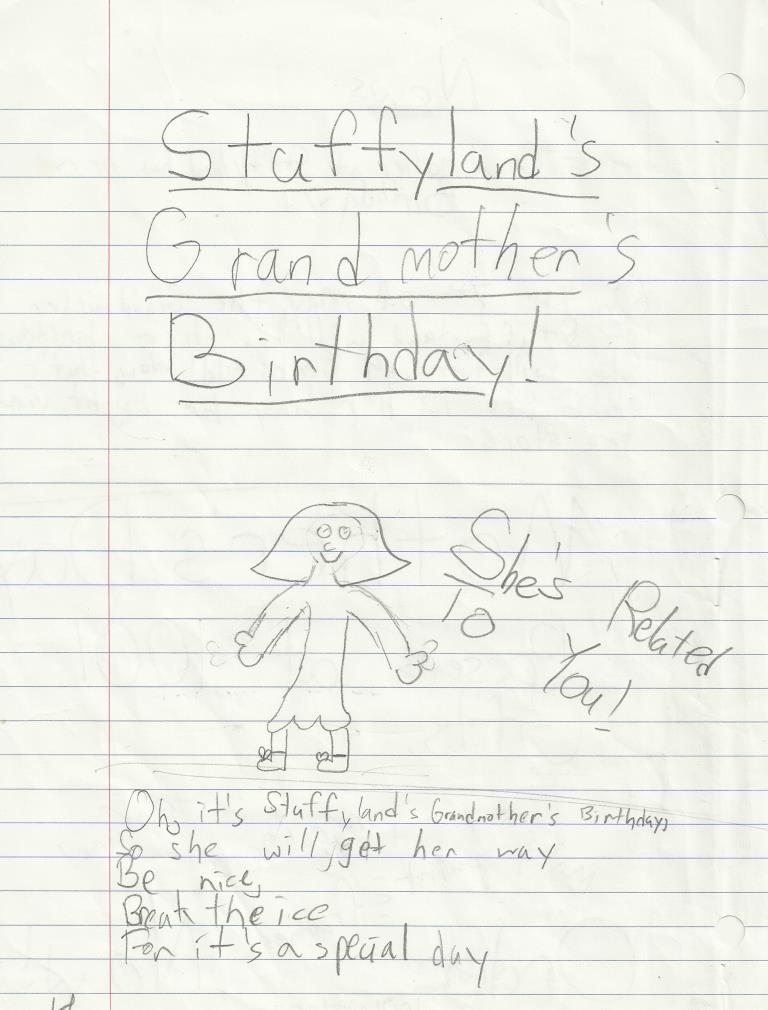 Stuffyland's
Grandmother's
Birthday!
She's Related
To You!
Oh, it's Stuffyland's Grandmother's Birthday,
So she will get her way
Be nice,
Break the ice
For it's a special day